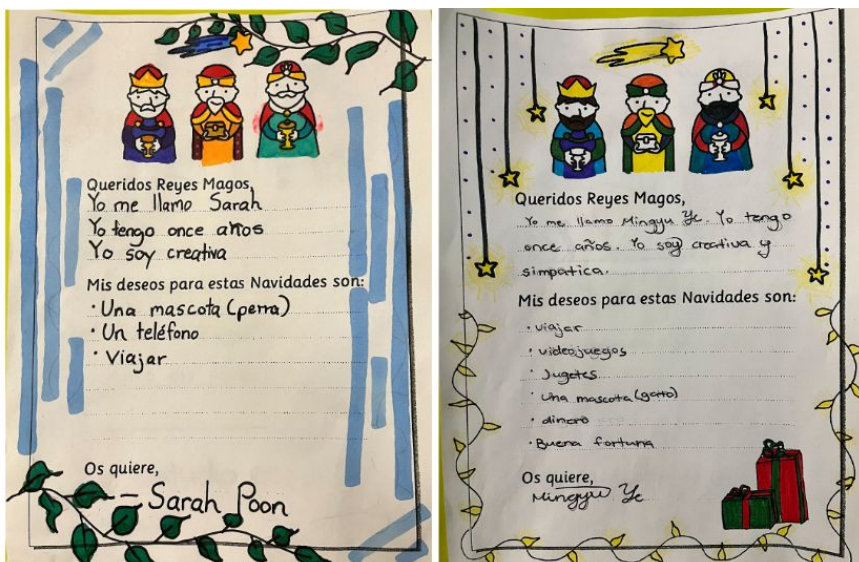 Queridos Reyes Magos,
Yo me llamo Sarah
Yo tengo once años
Yo soy creativa
Mis deseos para estas Navidades son:
· Una mascota (perra)
· Un teléfono
· Viajar
Os quiere,
- Sarah Poon
Queridos Reyes Magos,
Yo me llamo Mingyu Ye. Yo tengo
once años. Yo soy creativa y
simpatica.
Mis deseos para estas Navidades son:
· viajar
· videojuegos
· Jugetes
· una mascota (gatto)
· dinero
· Buena fortuna
Os quiere,
Mingyu Ye